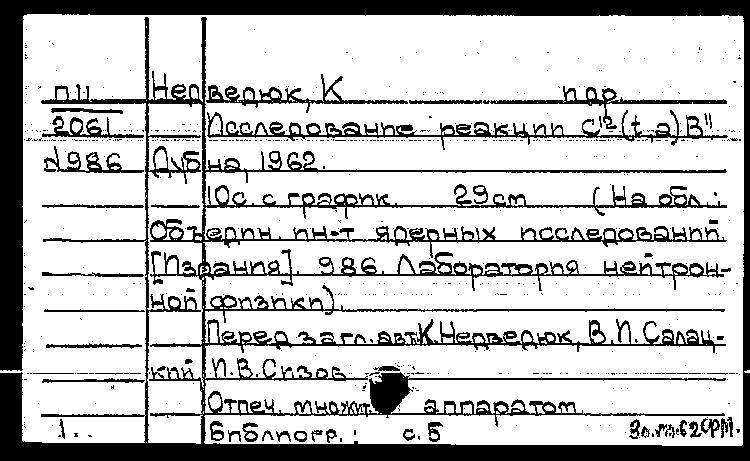 П11 Недведюк, К и др.
2061 Исследование реакции C¹²(t,α)B¹¹
d986 Дубна, 1962.
10с. с график. 29см (На обл.:
Объедин. ин-т ядерных исследований.
[Издания]. 986. Лаборатория нейтрон-
ной физики).
Перед загл. авт. К. Недведюк, В. И. Салац-
кий, И. В. Сизов
Отпеч. множит аппаратом
1.. Библиогр.: с. 5